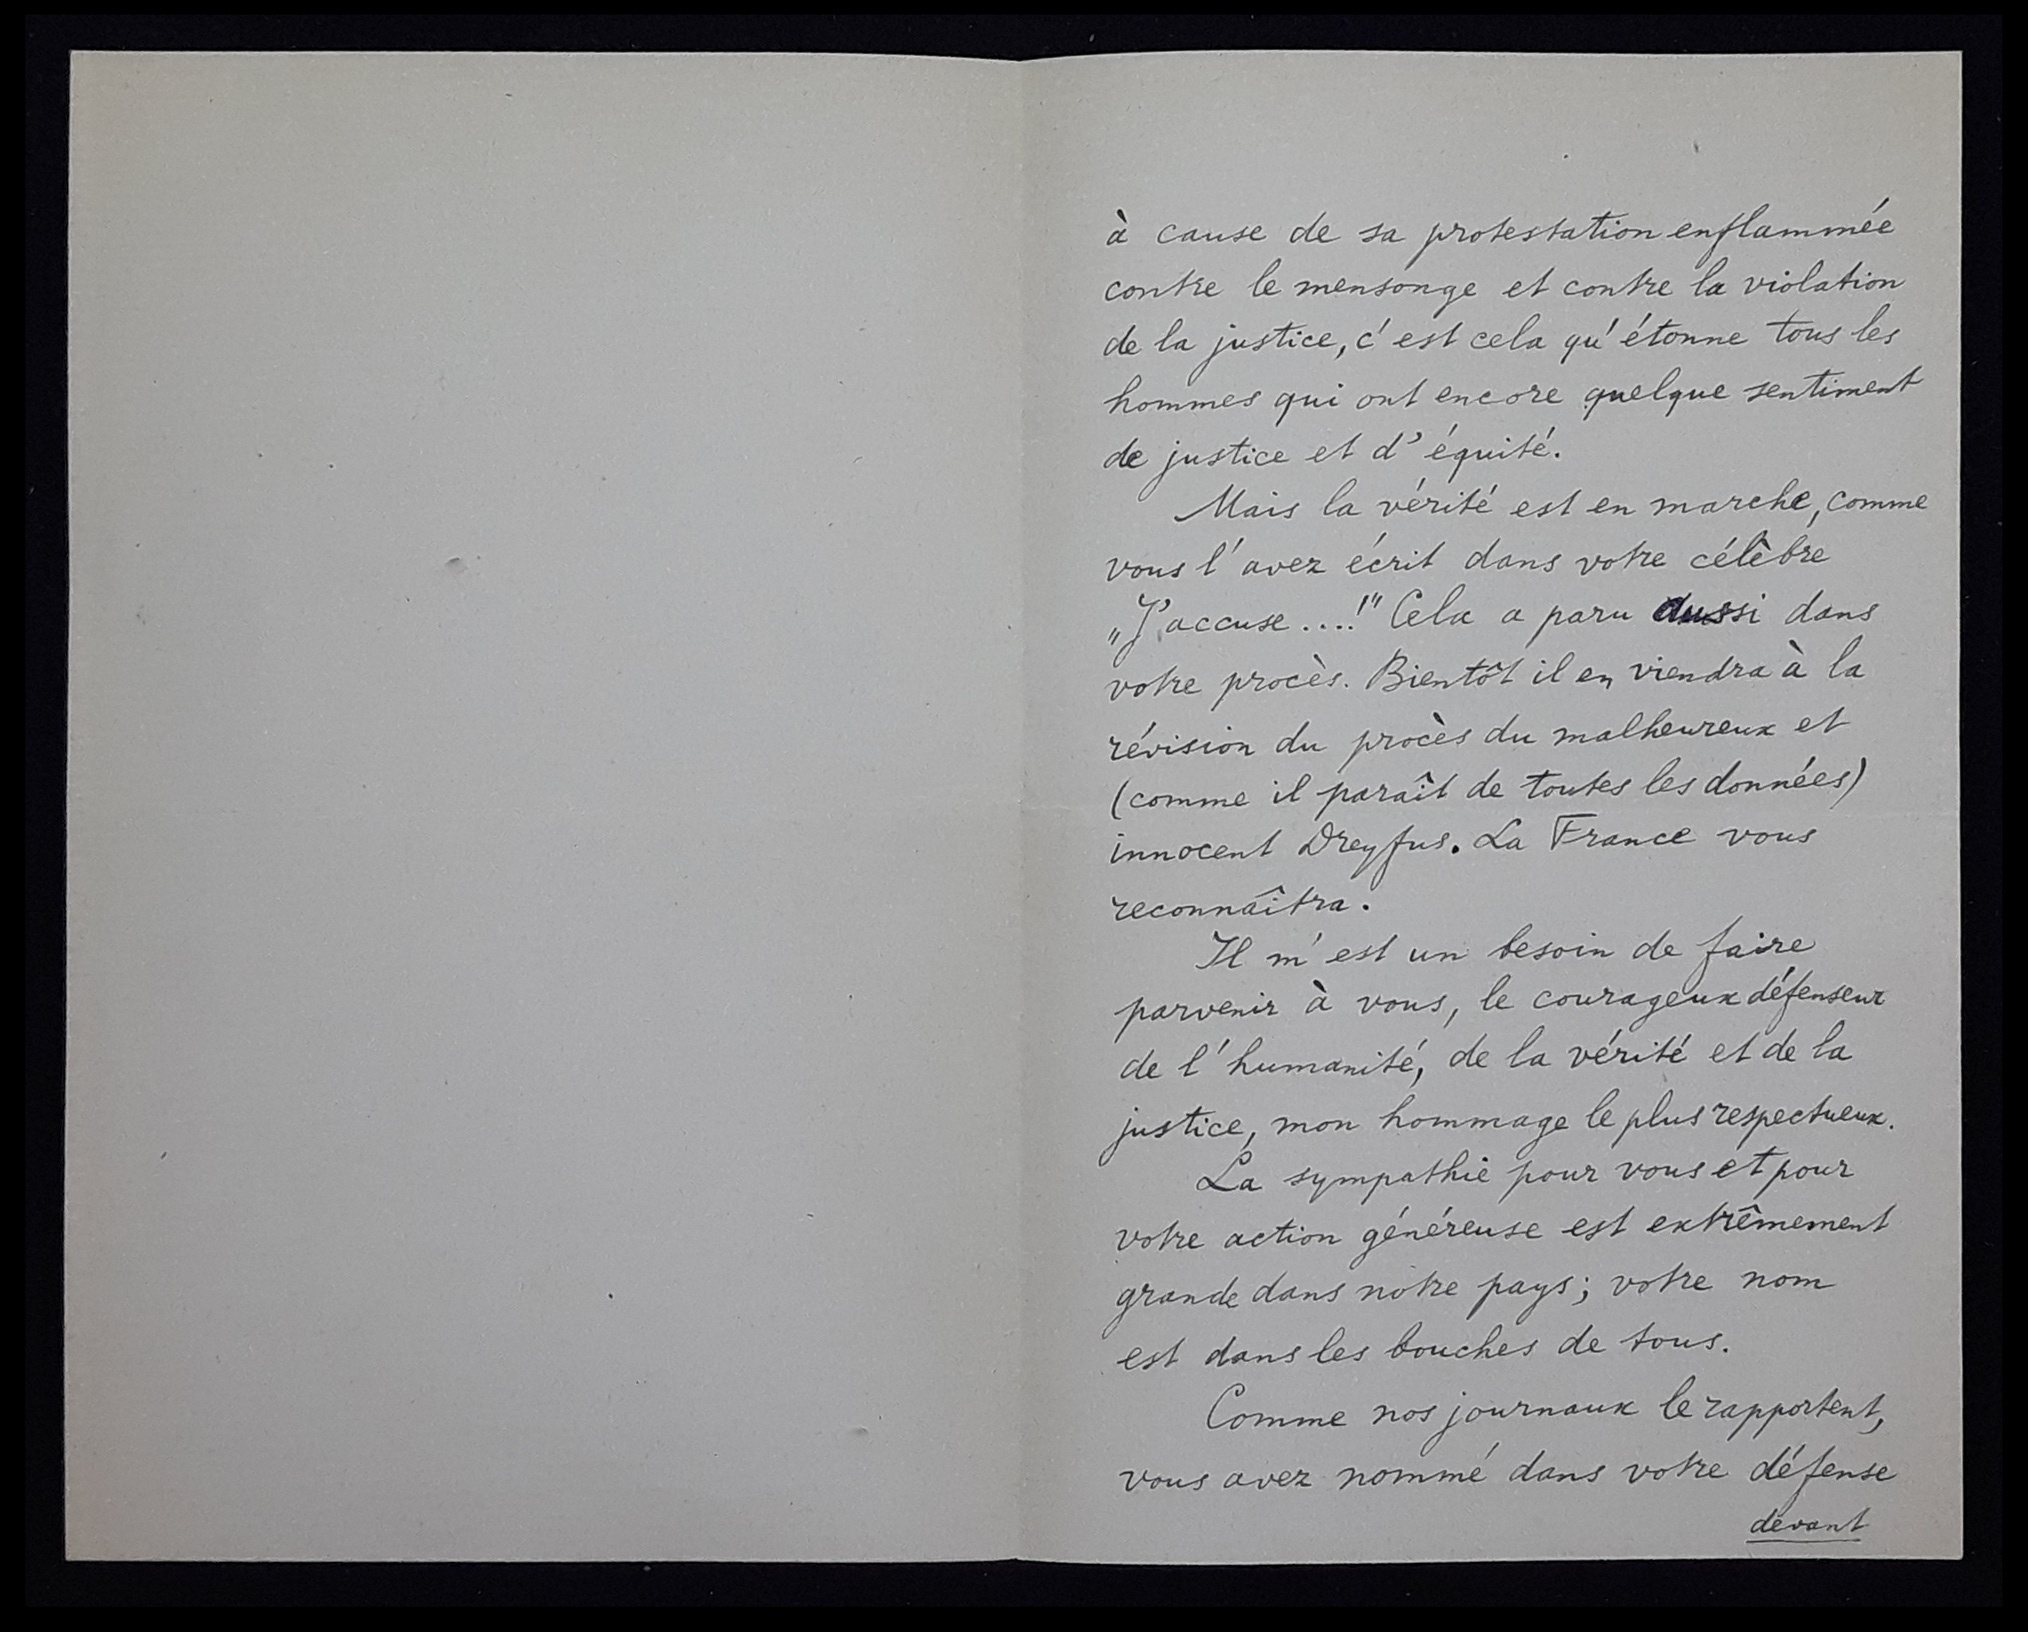 à cause de sa protestation enflammée
contre le mensonge et contre la violation
de la justice, c'est cela qu'étonne tous les
hommes qui ont encore quelque sentiment
de justice et d'équité.
Mais la vérité est en marche, comme
vous l'avez écrit dans votre célèbre
„J'accuse....!" Cela a paru aussi dans
votre procès. Bientôt il en viendra à la
révision du procès du malheureux et
(comme il paraît de toutes les données)
innocent Dreyfus. La France vous
reconnaîtra.
Il m'est un besoin de faire
parvenir à vous, le courageux défenseur
de l'humanité, de la vérité et de la
justice, mon hommage le plus respectueux.
La sympathie pour vous et pour
votre action généreuse est extrêmement
grande dans notre pays; votre nom
est dans les bouches de tous.
Comme nos journaux le rapportent,
vous avez nommé dans votre défense
devant